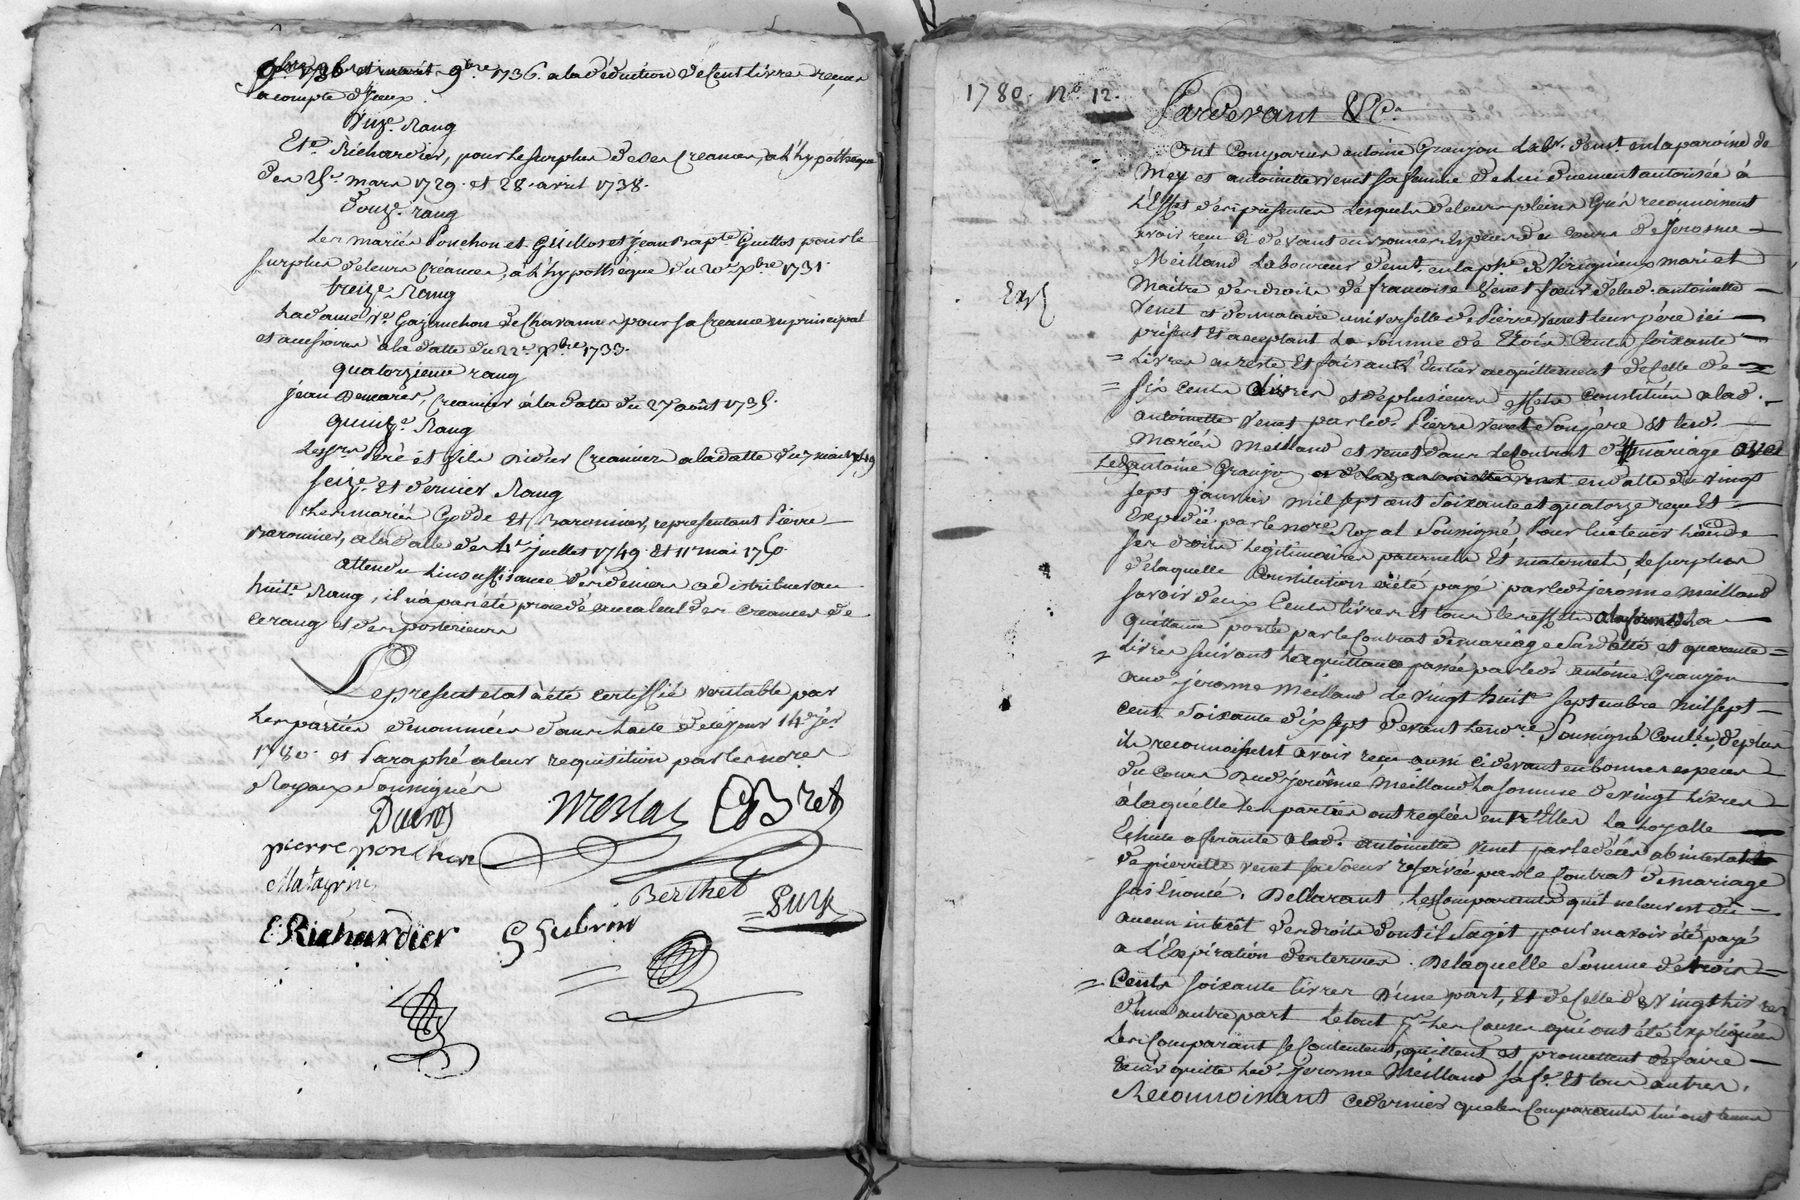 9bre 1736. a la déduction de Cent livres reçues
a compte d'Iceux.
Onze. Rang
Et.e Richardier, pour le surplus de ses Creances, a L'hypothèque
des mars 1729. et 28. avril 1738.
Douze. rang
Les mariés Ponchon et Guillot et jean Bapte Guillot pour le
surplus de leurs Créances, à L'hypothèque du Xbre 1731.
treize Rang
La dame ve Gazanchon de Chavannes pour sa Creance en principal
et accessoires à la datte du 22e Xbre 1733.
quatorzieme rang
jean Creancier à la datte du 27 août 1735.
quinze. Rang
Les Srs Peré et fils Creanciers a la datte du 7 mars 1749
seize. Et dernier Rang
Les mariés Godde Et Baronnier, representant Pierre
Baronnier, a la datte des juillet 1749. Et 11e mai 1750.
attendu L'insuffisance des deniers a distribuer au
huite. Rang, il n'a pas été procedé au calcul des creances de
ce rang et des posterieurs
Le present etat a été certiffié veritable par
Les parties denommées dans L'acte de ce jour 14e jer
1780. et Paraphé a leur requisition par les nores
Royaux Soussignés
Ducros
pierre ponchon
Matagrin
Berthet
E Richardier
1780. No 12.
Pardevant &Ca.
Ont Comparus antoine Granjon Labr. demt. en la paroisse de
Mey et antoinette Venet sa femme de Lui duement autorisée à
L'effet des presentes Lesquels de leurs pleins Grés reconnoissent
avoir reçu Ci devant en bonnes Espèces du cours de Jérosme
Meilland Laboureur demt. en la phe de Virigneux mari et
Maitre des droits de francoise Venet soeur de lad. antoinette
Exp
Venet et donnataire universelle de Pierre Venet leur père ici
présent Et acceptant La Somme de Trois Cents soixante
= Livres en reste Et faisant L'Entier acquittement de celle de =
= six cents Livres et de plusieurs Effets Constitués a lad.
antoinette Venet par led. Pierre Venet son père Et lesd.
Mariés Meilland et Venet dans Le Contrat de mariage avec
Led antoine Granjon en datte du vingt
sept janvier mil sept cent soixante et quatorze reçu Et
Expedié par le nore Royal Soussigné, pour lui tenir lieu de
ses droits Légitimaires paternels Et maternels, Le surplus
de laquelle Constitution a été payé par led. jerosme Meilland
savoir deux Cents livres Et tous les effets a la forme de La
quittance portée par le Contrat de mariage Susdatté, et quarente =
= Livres suivant La quittance passée par led. antoine Granjon
aud. jerosme Meilland Le vingt huit septembre mil sept
cent Soixante dix sept Devant le nore. Soussigné Contée, de plus
ils reconnoissent avoir reçu aussi ci devant en bonnes especes
du cours dud jerôme Meilland La somme de vingt Livres
à laquelle Les parties ont reglées entr'Elles La
Echute afferante a lad. antoinette Venet par le décès abintestat
de pierrette Venet sa soeur reservée par le Contrat de mariage
sus Enoncé. Déclarant Les Comparants qu'il ne leur est dû
aucun intérêt des droits dont il s'agit, pour m'avoir été payé
a L'Expiration des termes. De laquelle Somme de trois =
= Cents soixante livres d'une part, Et de Celle de Vingt Livres
d'une autre part Le tout pr Les Causes qui ont été Expliquées
Les Comparant se Contentent, quittent et promettent de faire
tenir quitte led. jerosme Meilland sa fe. Et tous autres.
Reconnoissant ce dernier que les Comparants lui ont tenu